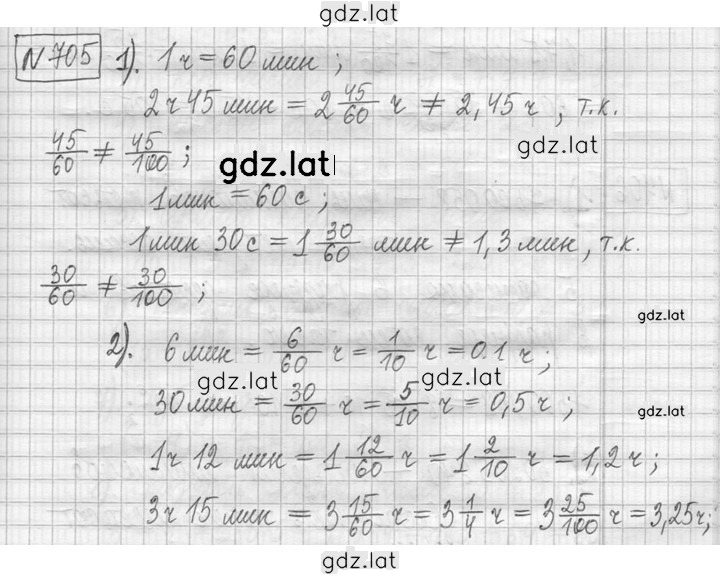 gdz.lat
N 705 1). 1 ч = 60 мин ;
2 ч 45 мин = 2 45/60 ч ≠ 2,45 ч , т.к.
45/60 ≠ 45/100 ;
gdz.lat
1 мин = 60 с ;
1 мин 30 с = 1 30/60 мин ≠ 1,3 мин, т.к.
30/60 ≠ 30/100 ;
gdz.lat
2). 6 мин = 6/60 ч = 1/10 ч = 0.1 ч ;
gdz.lat gdz.lat
30 мин = 30/60 ч = 5/10 ч = 0,5 ч ;
gdz.lat
1 ч 12 мин = 1 12/60 ч = 1 2/10 ч = 1,2 ч ;
3 ч 15 мин = 3 15/60 ч = 3 1/4 ч = 3 25/100 ч = 3,25 ч;
gdz.lat